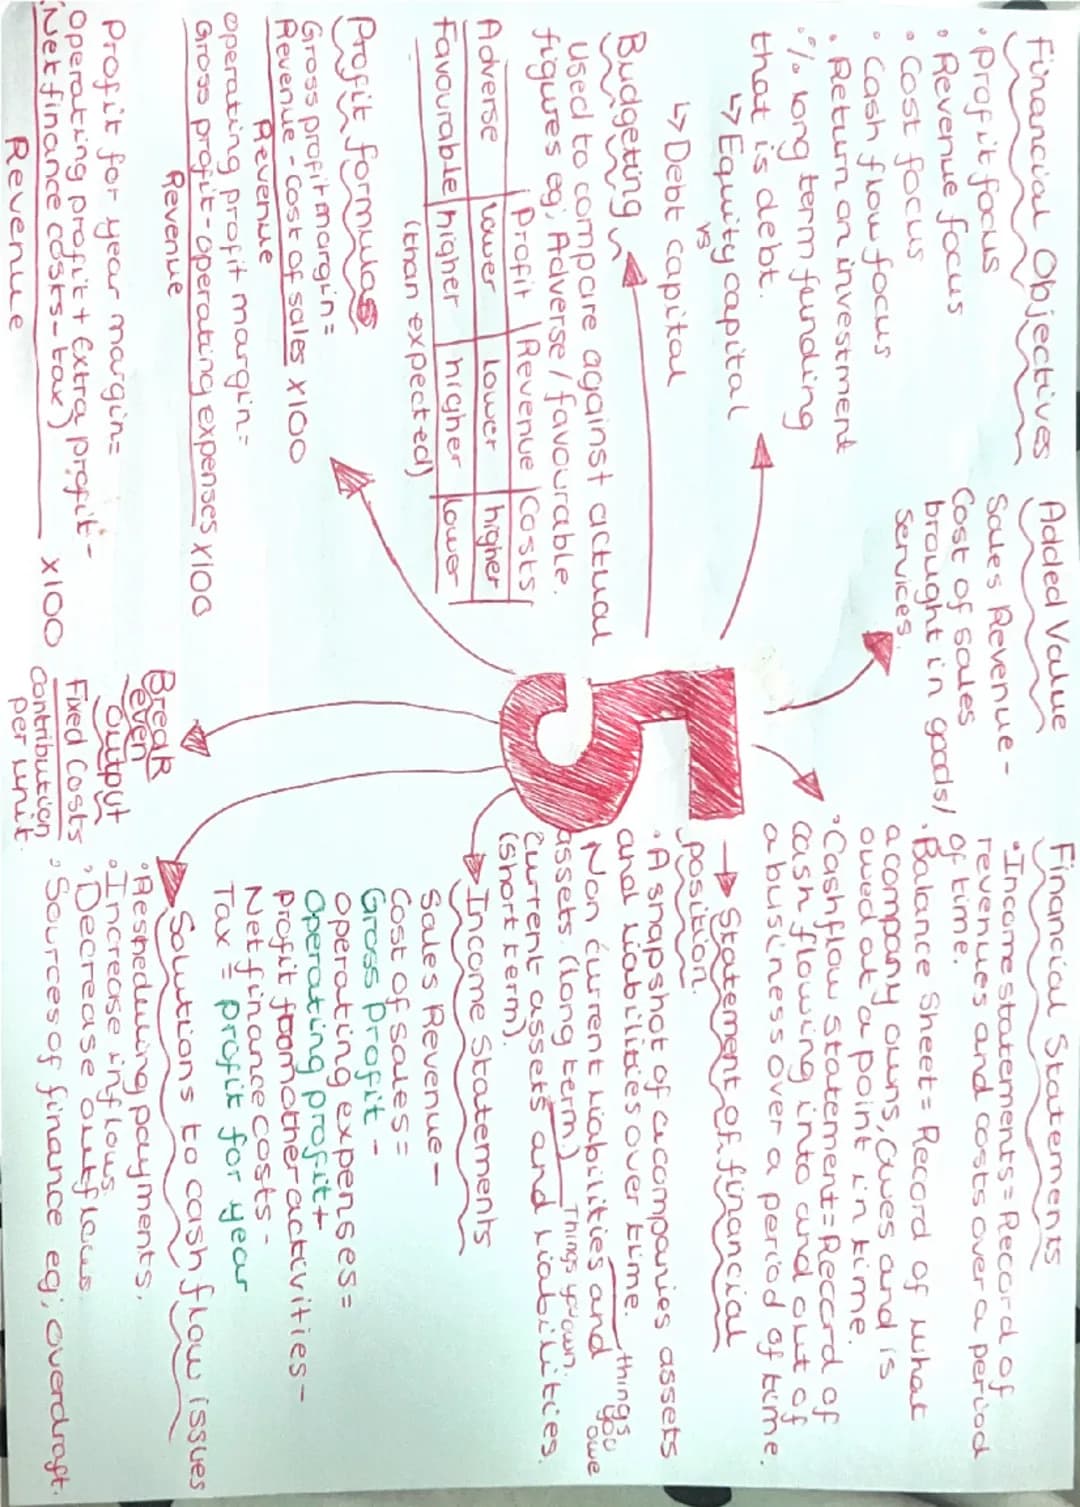 Financial Objectives
• Profit focus
• Revenue focus
• Cost focus
• Cash flow focus
• Return on investment
• % long term funding
that is debt.
↳ Equity capital
vs
↳ Debt capital
Added Value
Sales Revenue -
Cost of Sales
brought in goods/
services.
Financial Statements
• Income statements = Record of
revenues and costs over a period
of time.
• Balance Sheet = Record of what
a company owns, owes and is
owed at a point in time.
• Cashflow statement = Record of
cash flowing into and out of
a business over a period of time.
Budgeting
used to compare against actual
figures eg; Adverse / favourable.
Profit Revenue Costs
Adverse lower lower higher
Favourable higher higher lower
(than expected)
5
→ Statement of financial
position.
• A snapshot of a companies assets
and liabilities over time.
things
you
owe
Non current liabilities and
assets. (long term)
Things you own.
Current assets and liabilities.
(short term).
Profit formulas
Gross profit margin =
Revenue - Cost of sales x100
Revenue
operating profit margin =
Gross profit - operating expenses x100
Revenue
Profit for year margin =
operating profit + Extra profit -
(Net finance costs - tax) x100
Revenue
Break
even
output
Fixed Costs
contribution
per unit.
Income Statements
Sales Revenue -
Cost of sales =
Gross profit -
operating expenses =
Operating profit +
profit from other activities -
Net finance costs -
Tax = profit for year
Solutions to cash flow issues
• Rescheduling payments.
• Increase inflows
• Decrease outflows
• Sources of finance eg; overdraft.